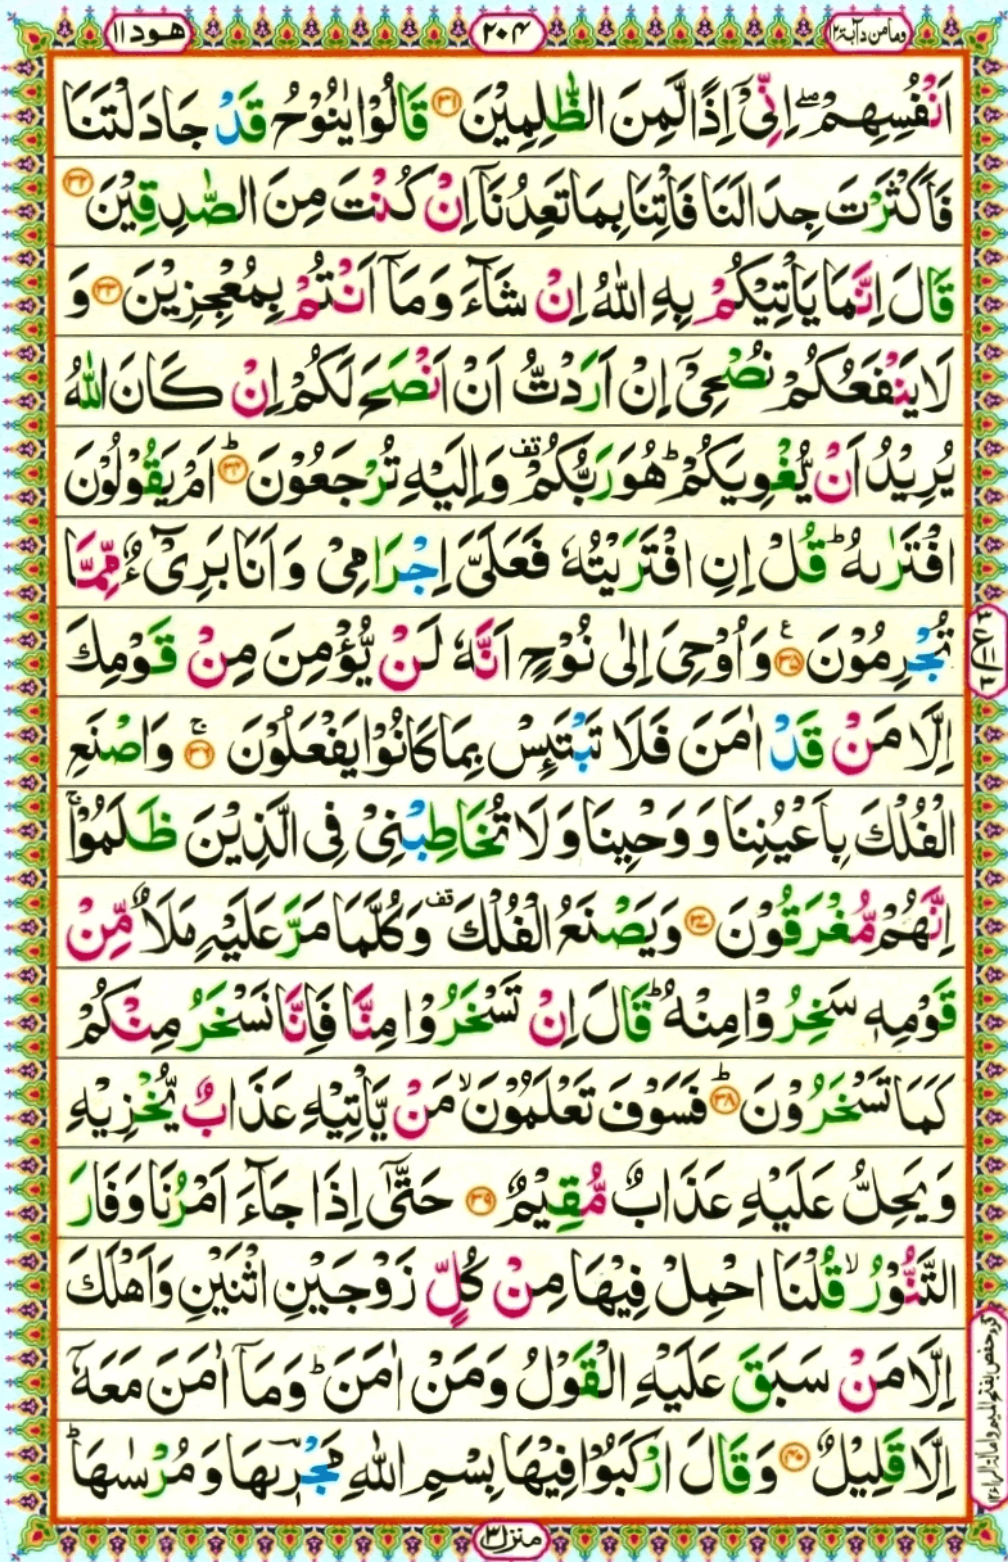 ومامن دآبة ١٢
٢٠٤
هود ١١
اَنْفُسِهِمْ ۖۚ اِنِّیْۤ اِذًا لَّمِنَ الظّٰلِمِیْنَ ﴿۳۱﴾ قَالُوْا یٰنُوْحُ قَدْ جَادَلْتَنَا
فَاَكْثَرْتَ جِدَالَنَا فَاْتِنَا بِمَا تَعِدُنَاۤ اِنْ كُنْتَ مِنَ الصّٰدِقِیْنَ ﴿۳۲﴾
قَالَ اِنَّمَا یَاْتِیْكُمْ بِهِ اللّٰهُ اِنْ شَآءَ وَ مَاۤ اَنْتُمْ بِمُعْجِزِیْنَ ﴿۳۳﴾ وَ
لَا یَنْفَعُكُمْ نُصْحِیْۤ اِنْ اَرَدْتُّ اَنْ اَنْصَحَ لَكُمْ اِنْ كَانَ اللّٰهُ
یُرِیْدُ اَنْ یُّغْوِیَكُمْ ؕ هُوَ رَبُّكُمْ قف وَ اِلَیْهِ تُرْجَعُوْنَ ﴿۳۴﴾ؕ اَمْ یَقُوْلُوْنَ
افْتَرٰىهُ ؕ قُلْ اِنِ افْتَرَیْتُهٗ فَعَلَیَّ اِجْرَامِیْ وَ اَنَا بَرِیْٓءٌ مِّمَّا
تُجْرِمُوْنَ ﴿۳۵﴾ ع وَ اُوْحِیَ اِلٰی نُوْحٍ اَنَّهٗ لَنْ یُّؤْمِنَ مِنْ قَوْمِكَ
اِلَّا مَنْ قَدْ اٰمَنَ فَلَا تَبْتَئِسْ بِمَا كَانُوْا یَفْعَلُوْنَ ﴿۳۶﴾ۚ وَ اصْنَعِ
الْفُلْكَ بِاَعْیُنِنَا وَ وَحْیِنَا وَ لَا تُخَاطِبْنِیْ فِی الَّذِیْنَ ظَلَمُوْا ۚ
اِنَّهُمْ مُّغْرَقُوْنَ ﴿۳۷﴾ وَ یَصْنَعُ الْفُلْكَ قف وَ كُلَّمَا مَرَّ عَلَیْهِ مَلَاٌ مِّنْ
قَوْمِهٖ سَخِرُوْا مِنْهُ ؕ قَالَ اِنْ تَسْخَرُوْا مِنَّا فَاِنَّا نَسْخَرُ مِنْكُمْ
كَمَا تَسْخَرُوْنَ ﴿۳۸﴾ؕ فَسَوْفَ تَعْلَمُوْنَ ۙ مَنْ یَّاْتِیْهِ عَذَابٌ یُّخْزِیْهِ
وَ یَحِلُّ عَلَیْهِ عَذَابٌ مُّقِیْمٌ ﴿۳۹﴾ حَتّٰۤی اِذَا جَآءَ اَمْرُنَا وَ فَارَ
التَّنُّوْرُ ۙ قُلْنَا احْمِلْ فِیْهَا مِنْ كُلٍّ زَوْجَیْنِ اثْنَیْنِ وَ اَهْلَكَ
اِلَّا مَنْ سَبَقَ عَلَیْهِ الْقَوْلُ وَ مَنْ اٰمَنَ ؕ وَ مَاۤ اٰمَنَ مَعَهٗۤ
اِلَّا قَلِیْلٌ ﴿۴۰﴾ وَ قَالَ ارْكَبُوْا فِیْهَا بِسْمِ اللّٰهِ مَجْرٖىهَا وَ مُرْسٰىهَا ؕ
منزل ۳